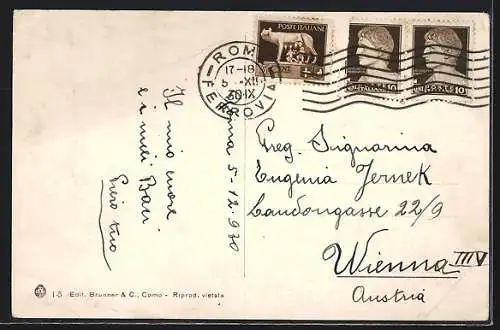 ROMA
17-18
5 XII
30 IX
FERROVIA
POSTE ITALIANE
Roma 5-12.930
Il mio cuore
e i miei Baci
Piero tuo
Preg. Signorina
Eugenia Jernek
Laudongasse 22/9
Wienna
Austria
15 Edit. Brunner & C., Como - Riprod. vietata